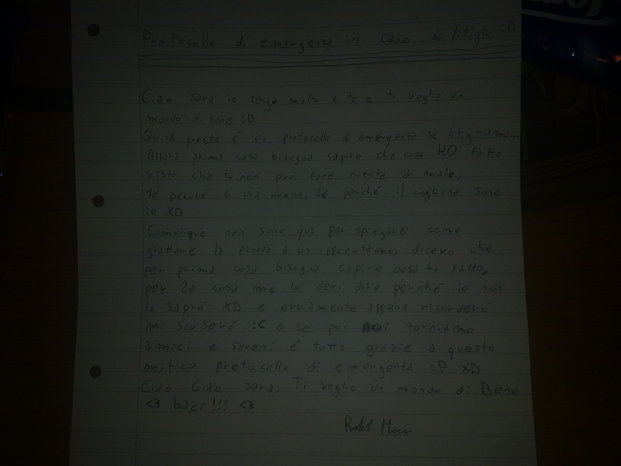 Protocollo di emergenza in caso di litigio :D
Ciao sara io tengo molto a te e ti voglio un
mondo di bene :D
Quindi questo è un protocollo di emergenza se litighiamo...
Allora prima cosa bisogna capire che cosa HO fatto
visto che tu non puoi fare niente di male,
1º perché 6 una donna, 2º perché il coglione sono
io XD
Comunque non sono qui per spiegarti come
grattare la pancia a un ippopotamo, dicevo che
per prima cosa bisogna capire cosa ho fatto,
per 2a cosa me lo devi dire perché io non
lo saprò XD e ovviamente appena ricorderò
mi scuserò :C e se poi noi torniamo
amici e sereni è tutto grazie a questo
mitico protocollo di emergenza :P XD
Ciao Ciao sara, Ti voglio un mondo di Bene
<3 baci!!! <3